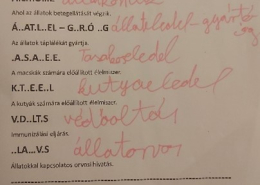 Ahol az állatok betegellátását végzik.
Á..ATL..EL – G..RÓ ..G állateledel gyártó
Az állatok táplálékát gyártja.
.A.SA.EE. Tasakoseledel
A macskák számára előállított élelmiszer.
K.T..E.E.L kutyaeledel
A kutyák számára előállított élelmiszer.
V.D..LTS védőoltás
Immunizálási eljárás.
..LA..V.S állatorvos
Állatokkal kapcsolatos orvosi hivatás.